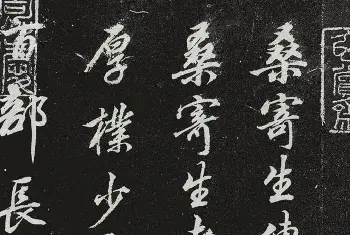 桑寄生傳
桑寄生者
厚樸少
首部長